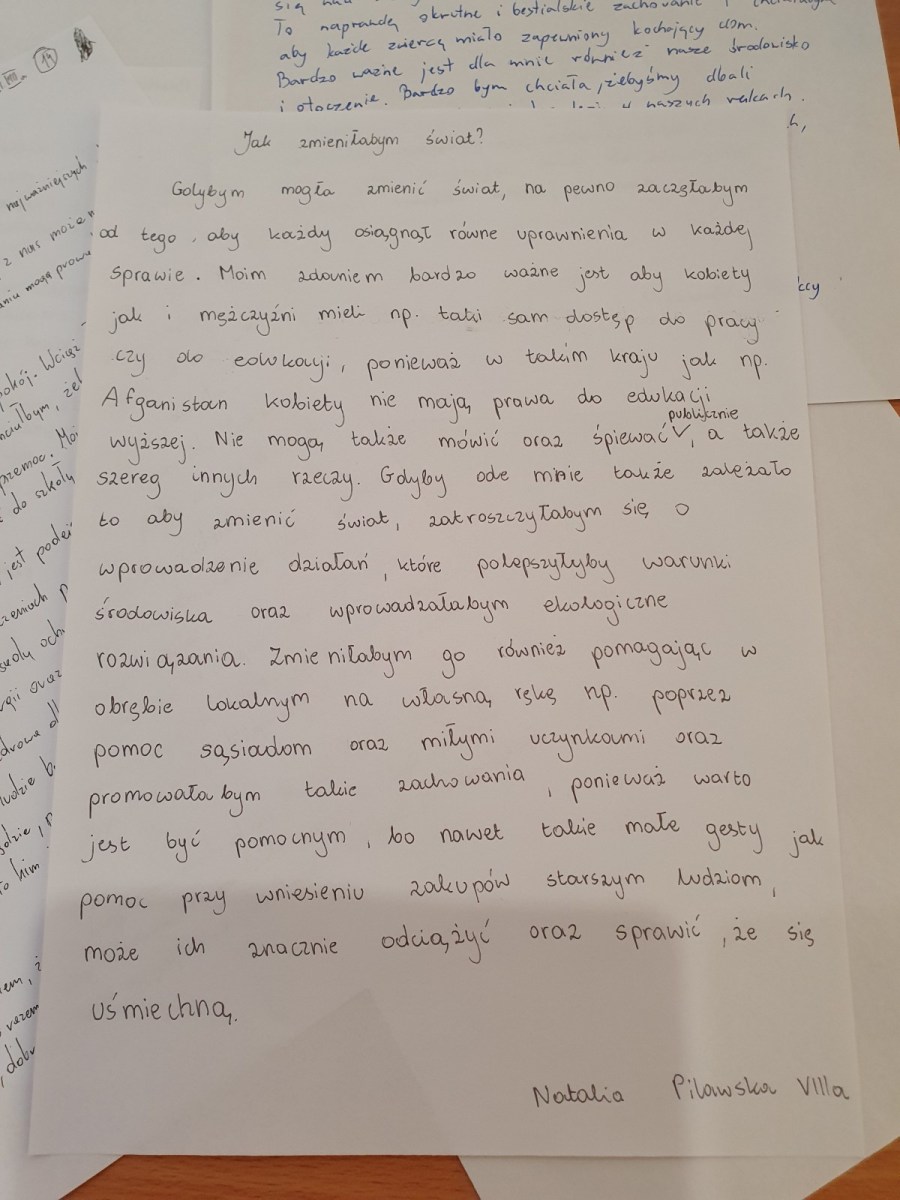 To naprawdę okrutne i bestialskie zachowanie
aby każde zwierzę miało zapewniony kochający dom.
Bardzo ważne jest dla mnie również nasze środowisko
i otoczenie. Bardzo bym chciała, żebyśmy dbali
w naszych rękach.
14
najważniejszych
z nas może
Jak zmieniłabym świat?
Gdybym mogła zmienić świat, na pewno zaczęłabym
od tego, aby każdy osiągnął równe uprawnienia w każdej
sprawie. Moim zdaniem bardzo ważne jest aby kobiety
jak i mężczyźni mieli np. taki sam dostęp do pracy
czy do edukacji, ponieważ w takim kraju jak np.
Afganistan kobiety nie mają prawa do edukacji
wyższej. Nie mogą także mówić oraz śpiewać publicznie, a także
szereg innych rzeczy. Gdyby ode mnie także zależało
to aby zmienić świat, zatroszczyłabym się o
wprowadzenie działań, które polepszyłyby warunki
środowiska oraz wprowadzałabym ekologiczne
rozwiązania. Zmieniłabym go również pomagając w
obrębie lokalnym na własną rękę np. poprzez
pomoc sąsiadom oraz miłymi uczynkami oraz
promowałabym takie zachowania, ponieważ warto
jest być pomocnym, bo nawet takie małe gesty jak
pomoc przy wniesieniu zakupów starszym ludziom,
może ich znacznie odciążyć oraz sprawić, że się
uśmiechną.
Natalia Pilawska VIIIa